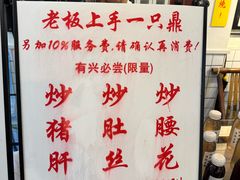 老板上手一只鼎
另加10%服务费,请确认再消费!
有兴必尝(限量)
炒 炒 炒
猪 肚 腰
肝 丝 花